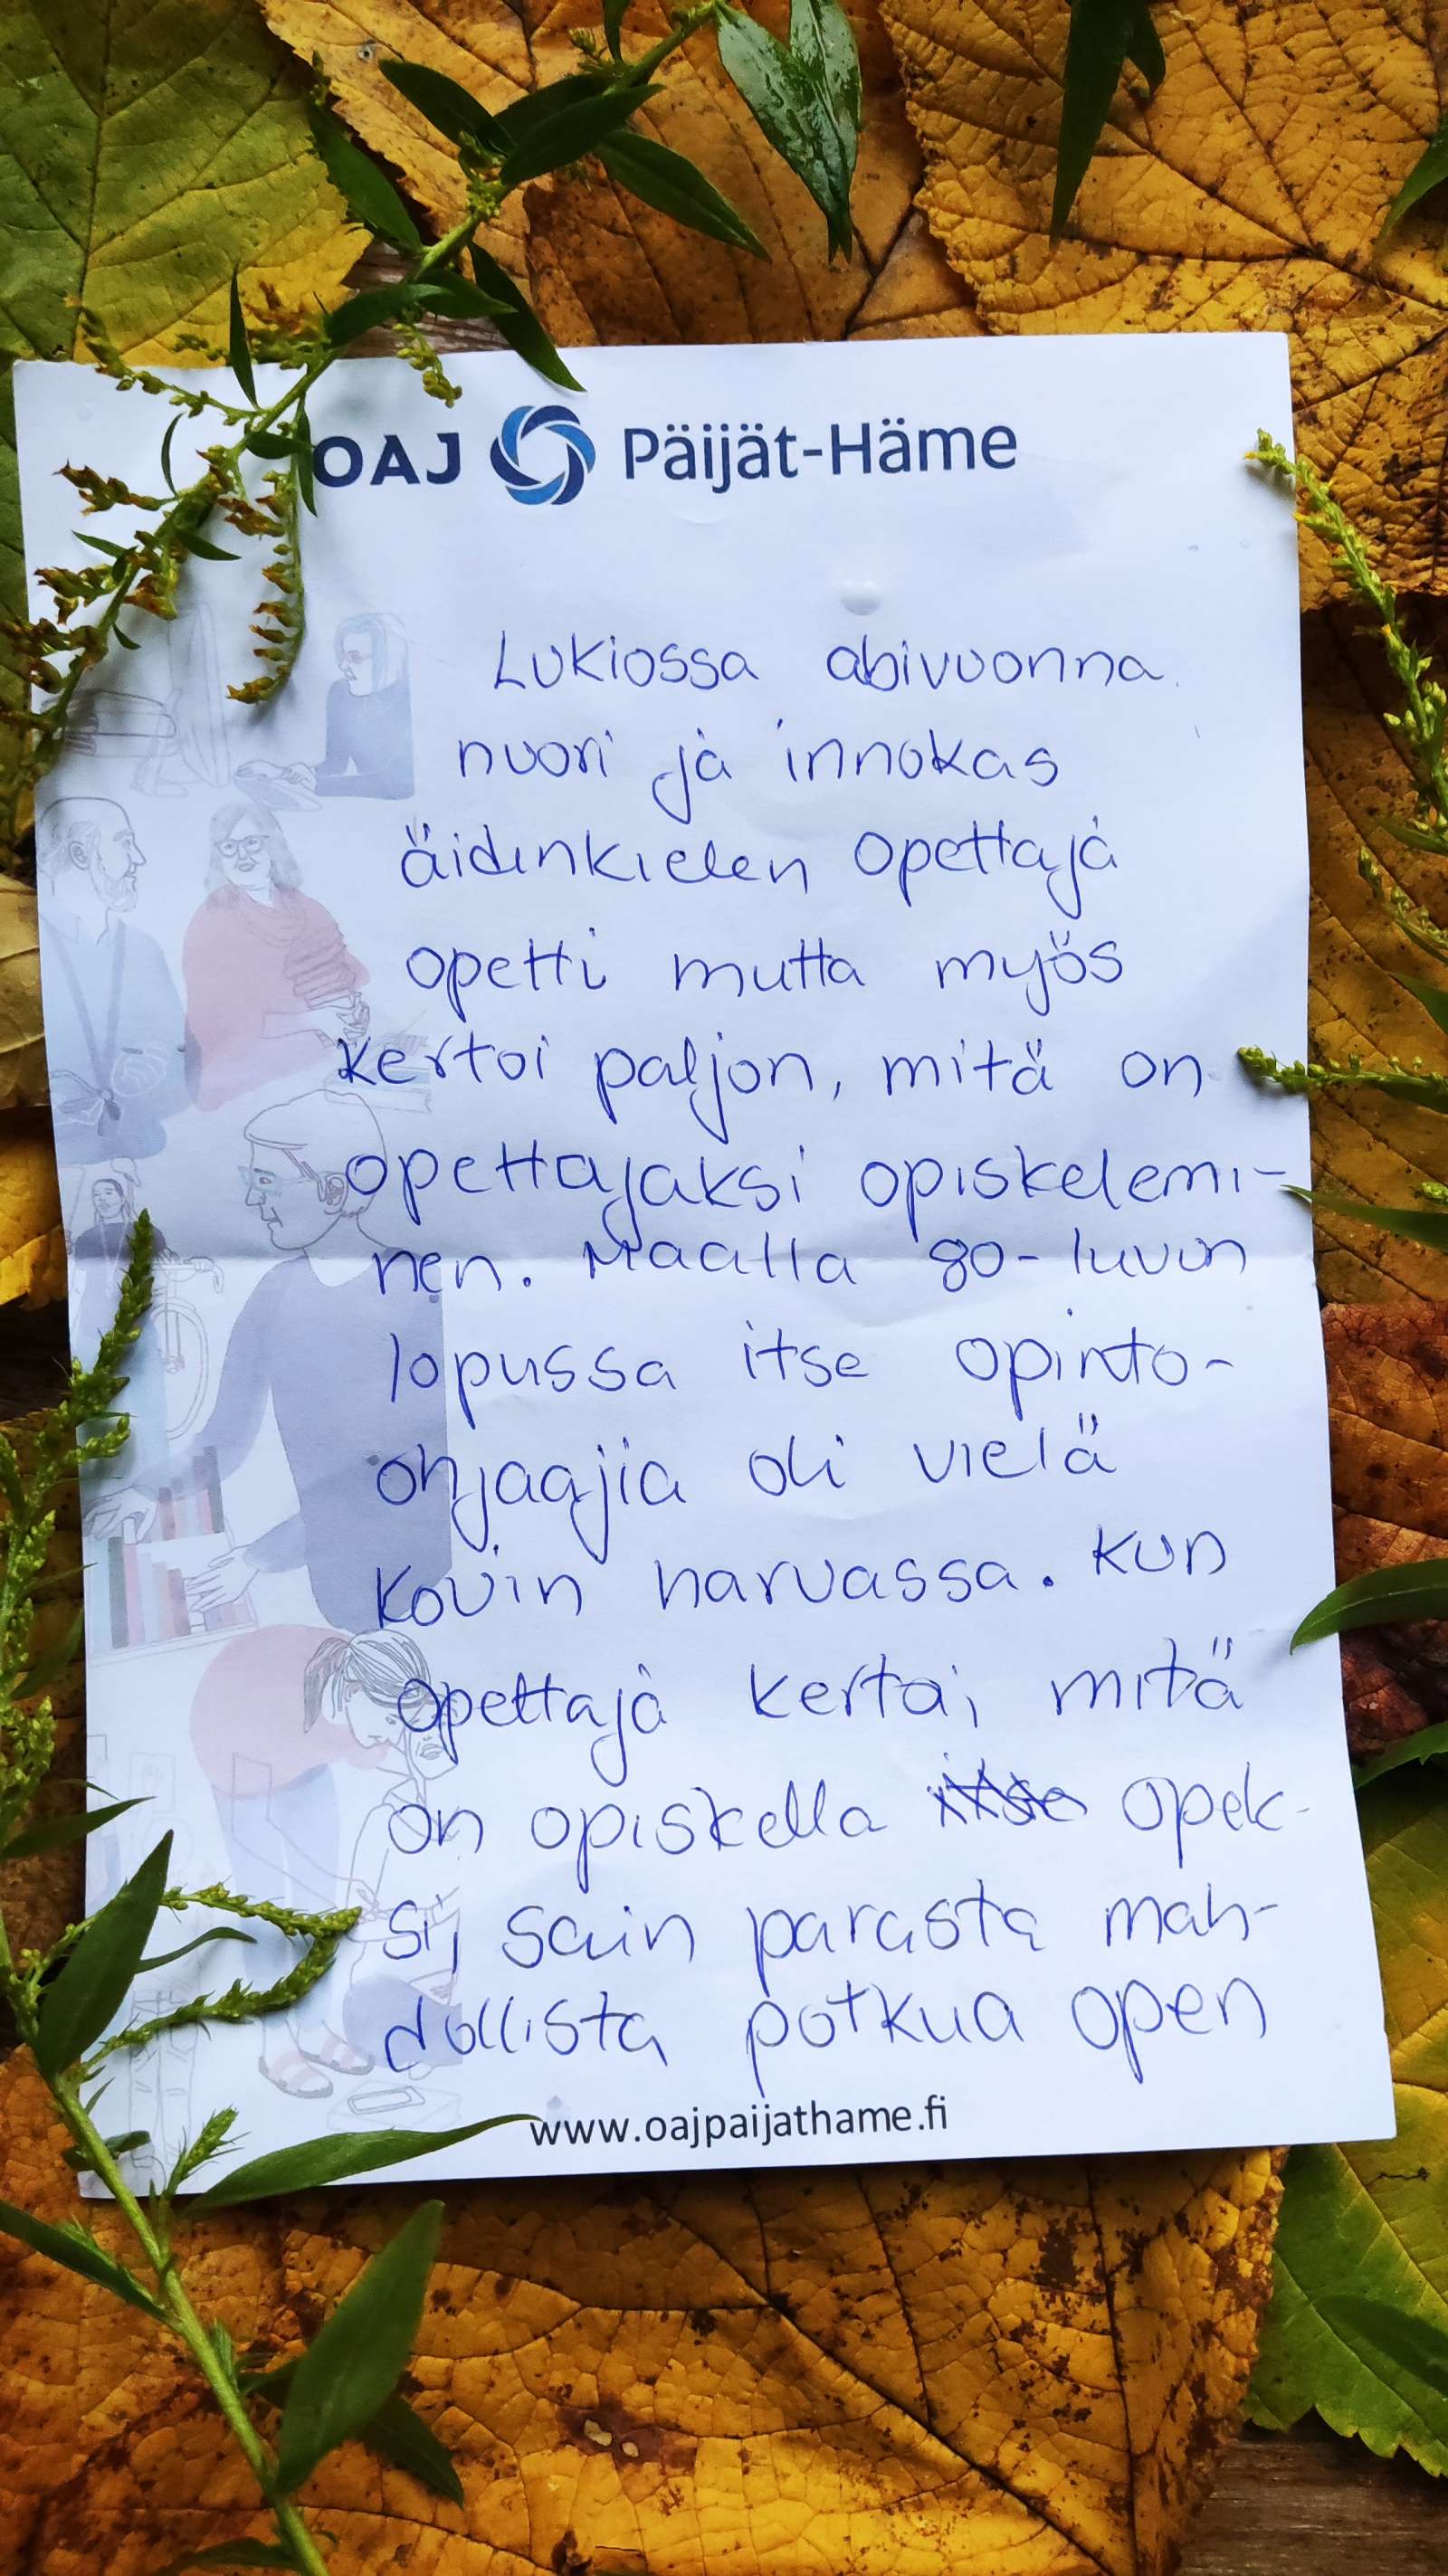 OAJ Päijät-Häme
Lukiossa abivuonna
nuori ja innokas
äidinkielen opettaja
opetti mutta myös
kertoi paljon, mitä on
opettajaksi opiskelemi-
nen. Maalla 80-luvun
lopussa itse opinto-
ohjaajia oli vielä
kovin harvassa. Kun
opettaja kertoi, mitä
on opiskella itse opek-
si, sain parasta mah-
dollista potkua open
www.oajpaijathame.fi